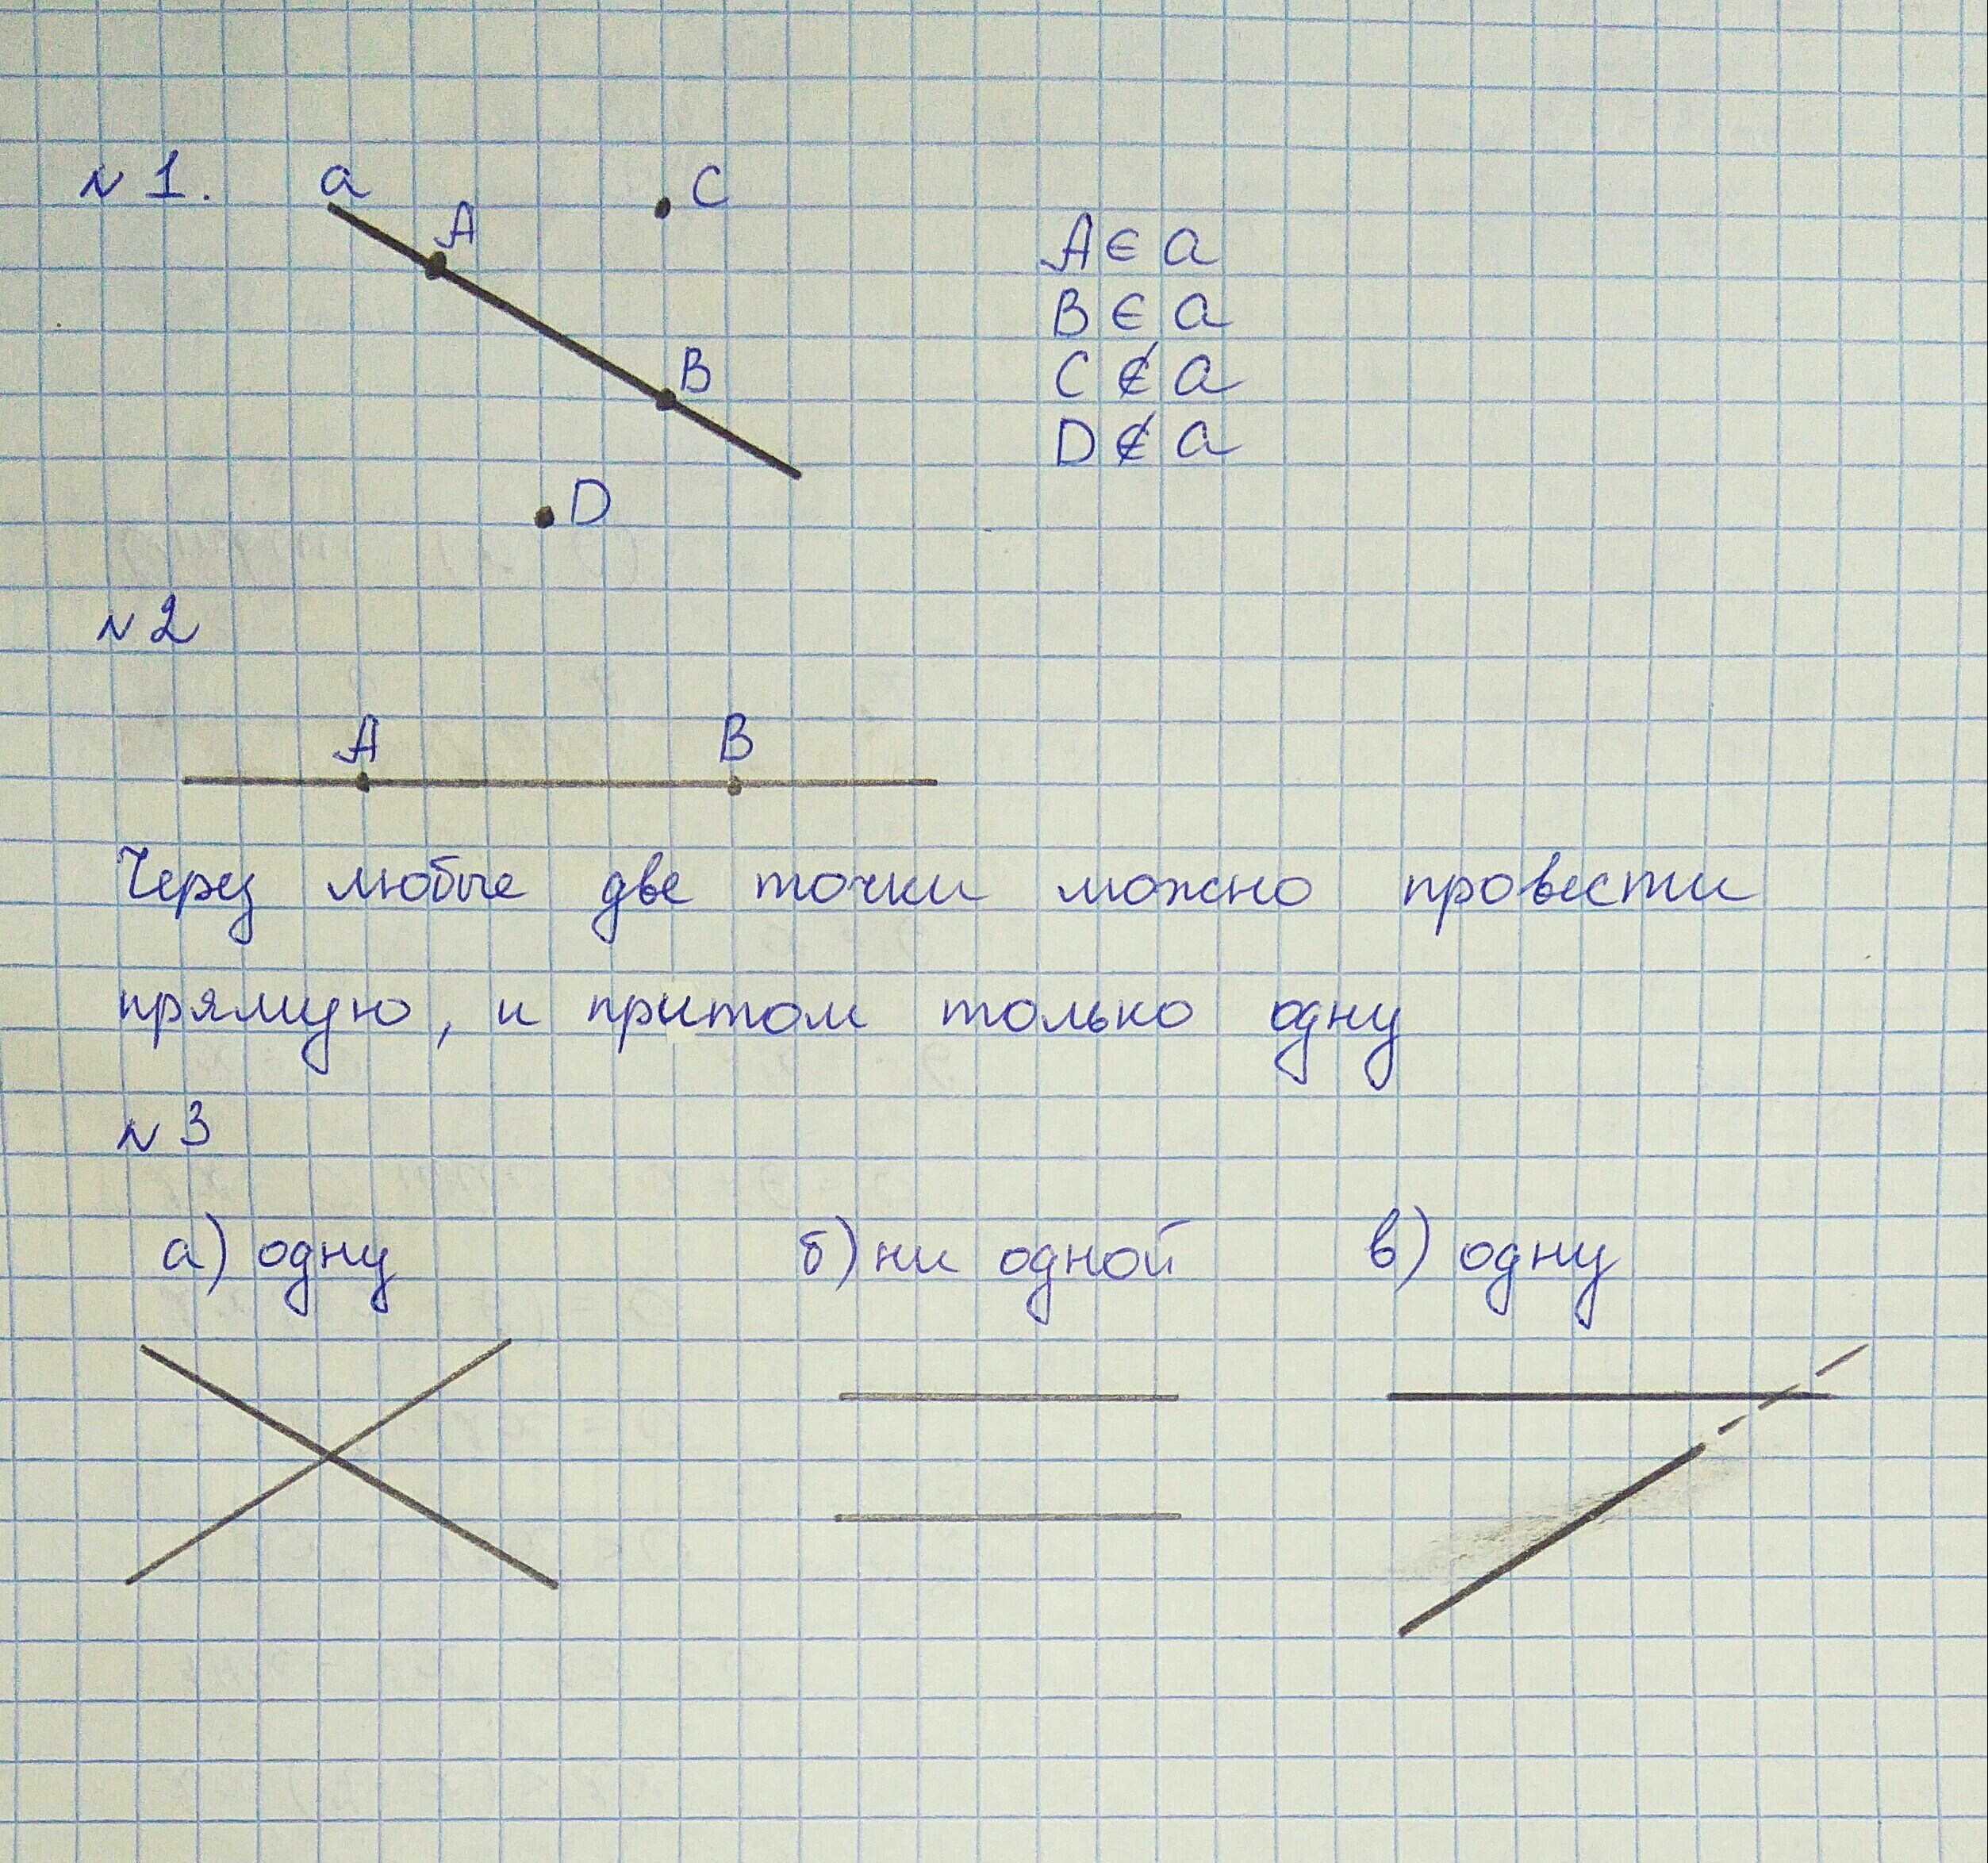 N 1. a
A
C
B
D
A ∈ a
B ∈ a
C ∉ a
D ∉ a
N 2
A B
Через любые две точки можно провести
прямую, и притом только одну
N 3
а) одну б) ни одной в) одну